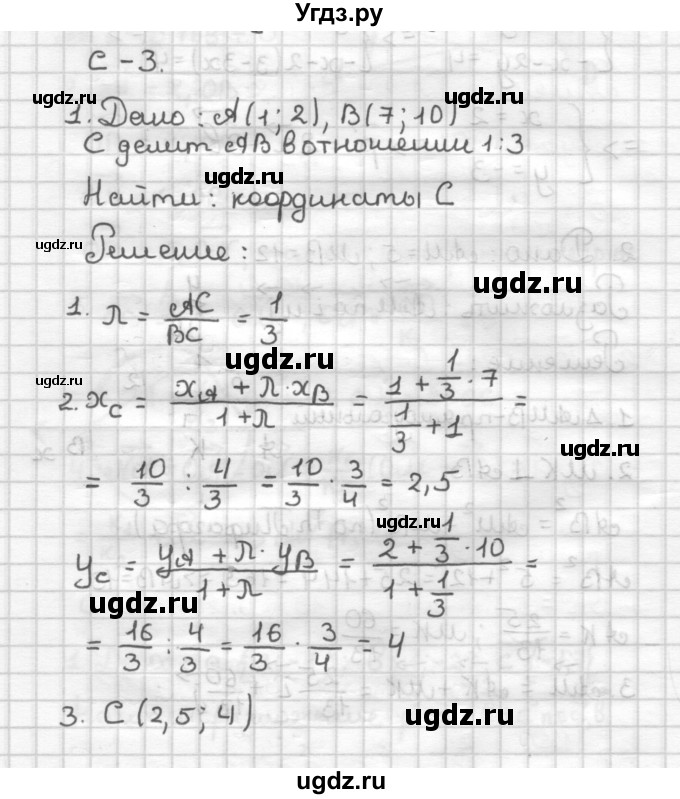 Угдз.ру
С-3.
ugdz.ru
ugdz.ru
1. Дано: A(1; 2), B(7; 10)
ugdz.ru
С делит AB в отношении 1:3
ugdz.ru
Найти: координаты С
ugdz.ru
Решение:
ugdz.ru
1. λ = AC/BC = 1/3
ugdz.ru
ugdz.ru
2. x_C = (x_A + λ·x_B)/(1+λ) = (1 + 1/3 · 7)/(1/3 + 1) =
ugdz.ru
ugdz.ru
= 10/3 : 4/3 = 10/3 · 3/4 = 2,5
ugdz.ru
y_C = (y_A + λ· y_B)/(1+λ) = (2 + 1/3 · 10)/(1 + 1/3) =
ugdz.ru
ugdz.ru
= 16/3 : 4/3 = 16/3 · 3/4 = 4
ugdz.ru
3. С (2,5; 4)
ugdz.ru
ugdz.ru